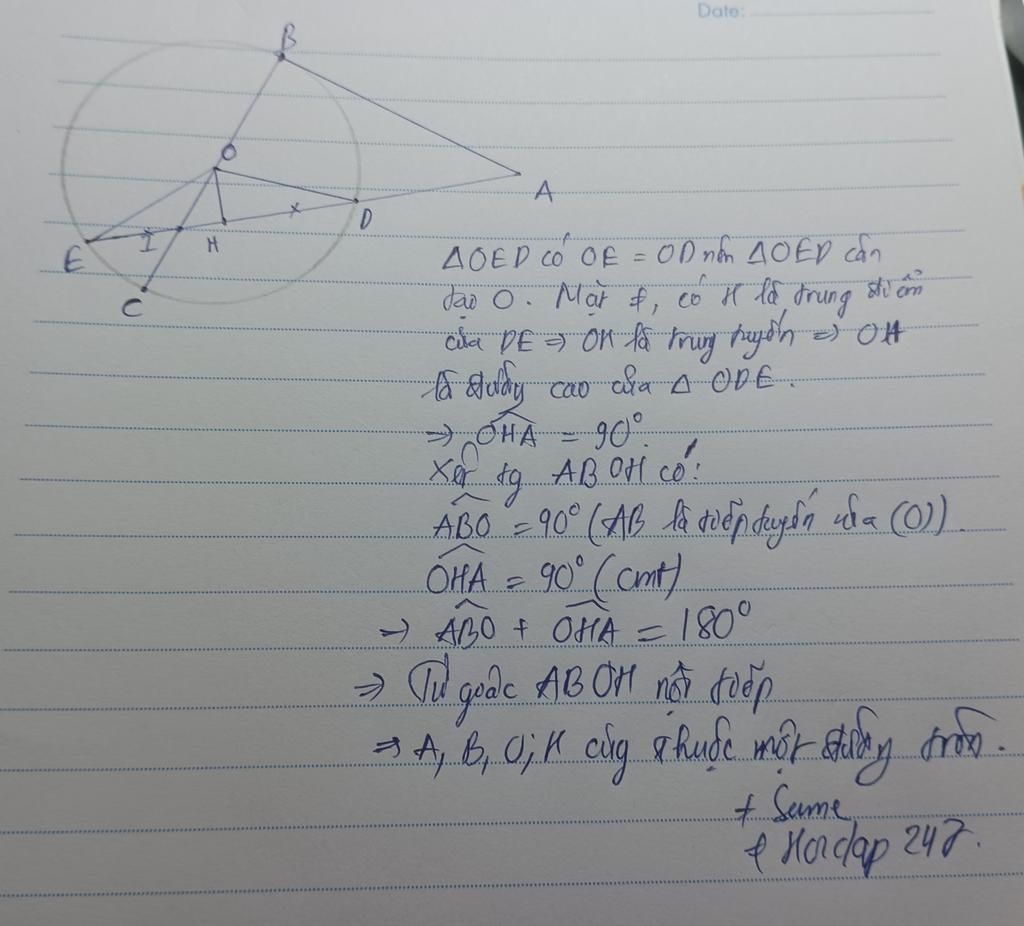 Date:
B
O
A
D
E
I
H
x
C
ΔOED có OE = OD nên ΔOED cân
tại O. Mặt ≠, có H là trung điểm
của DE => OH là trung tuyến => OH
là đường cao của Δ ODE.
=> OHA = 90°.
Xét tg ABOH có:
ABO = 90° (AB là tiếp tuyến của (O)).
OHA = 90° (cmt)
=> ABO + OHA = 180°
=> Tứ giác ABOH nội tiếp
=> A, B, O, H cùng thuộc một đường tròn.
+ Sume
+ Hoidap 247.